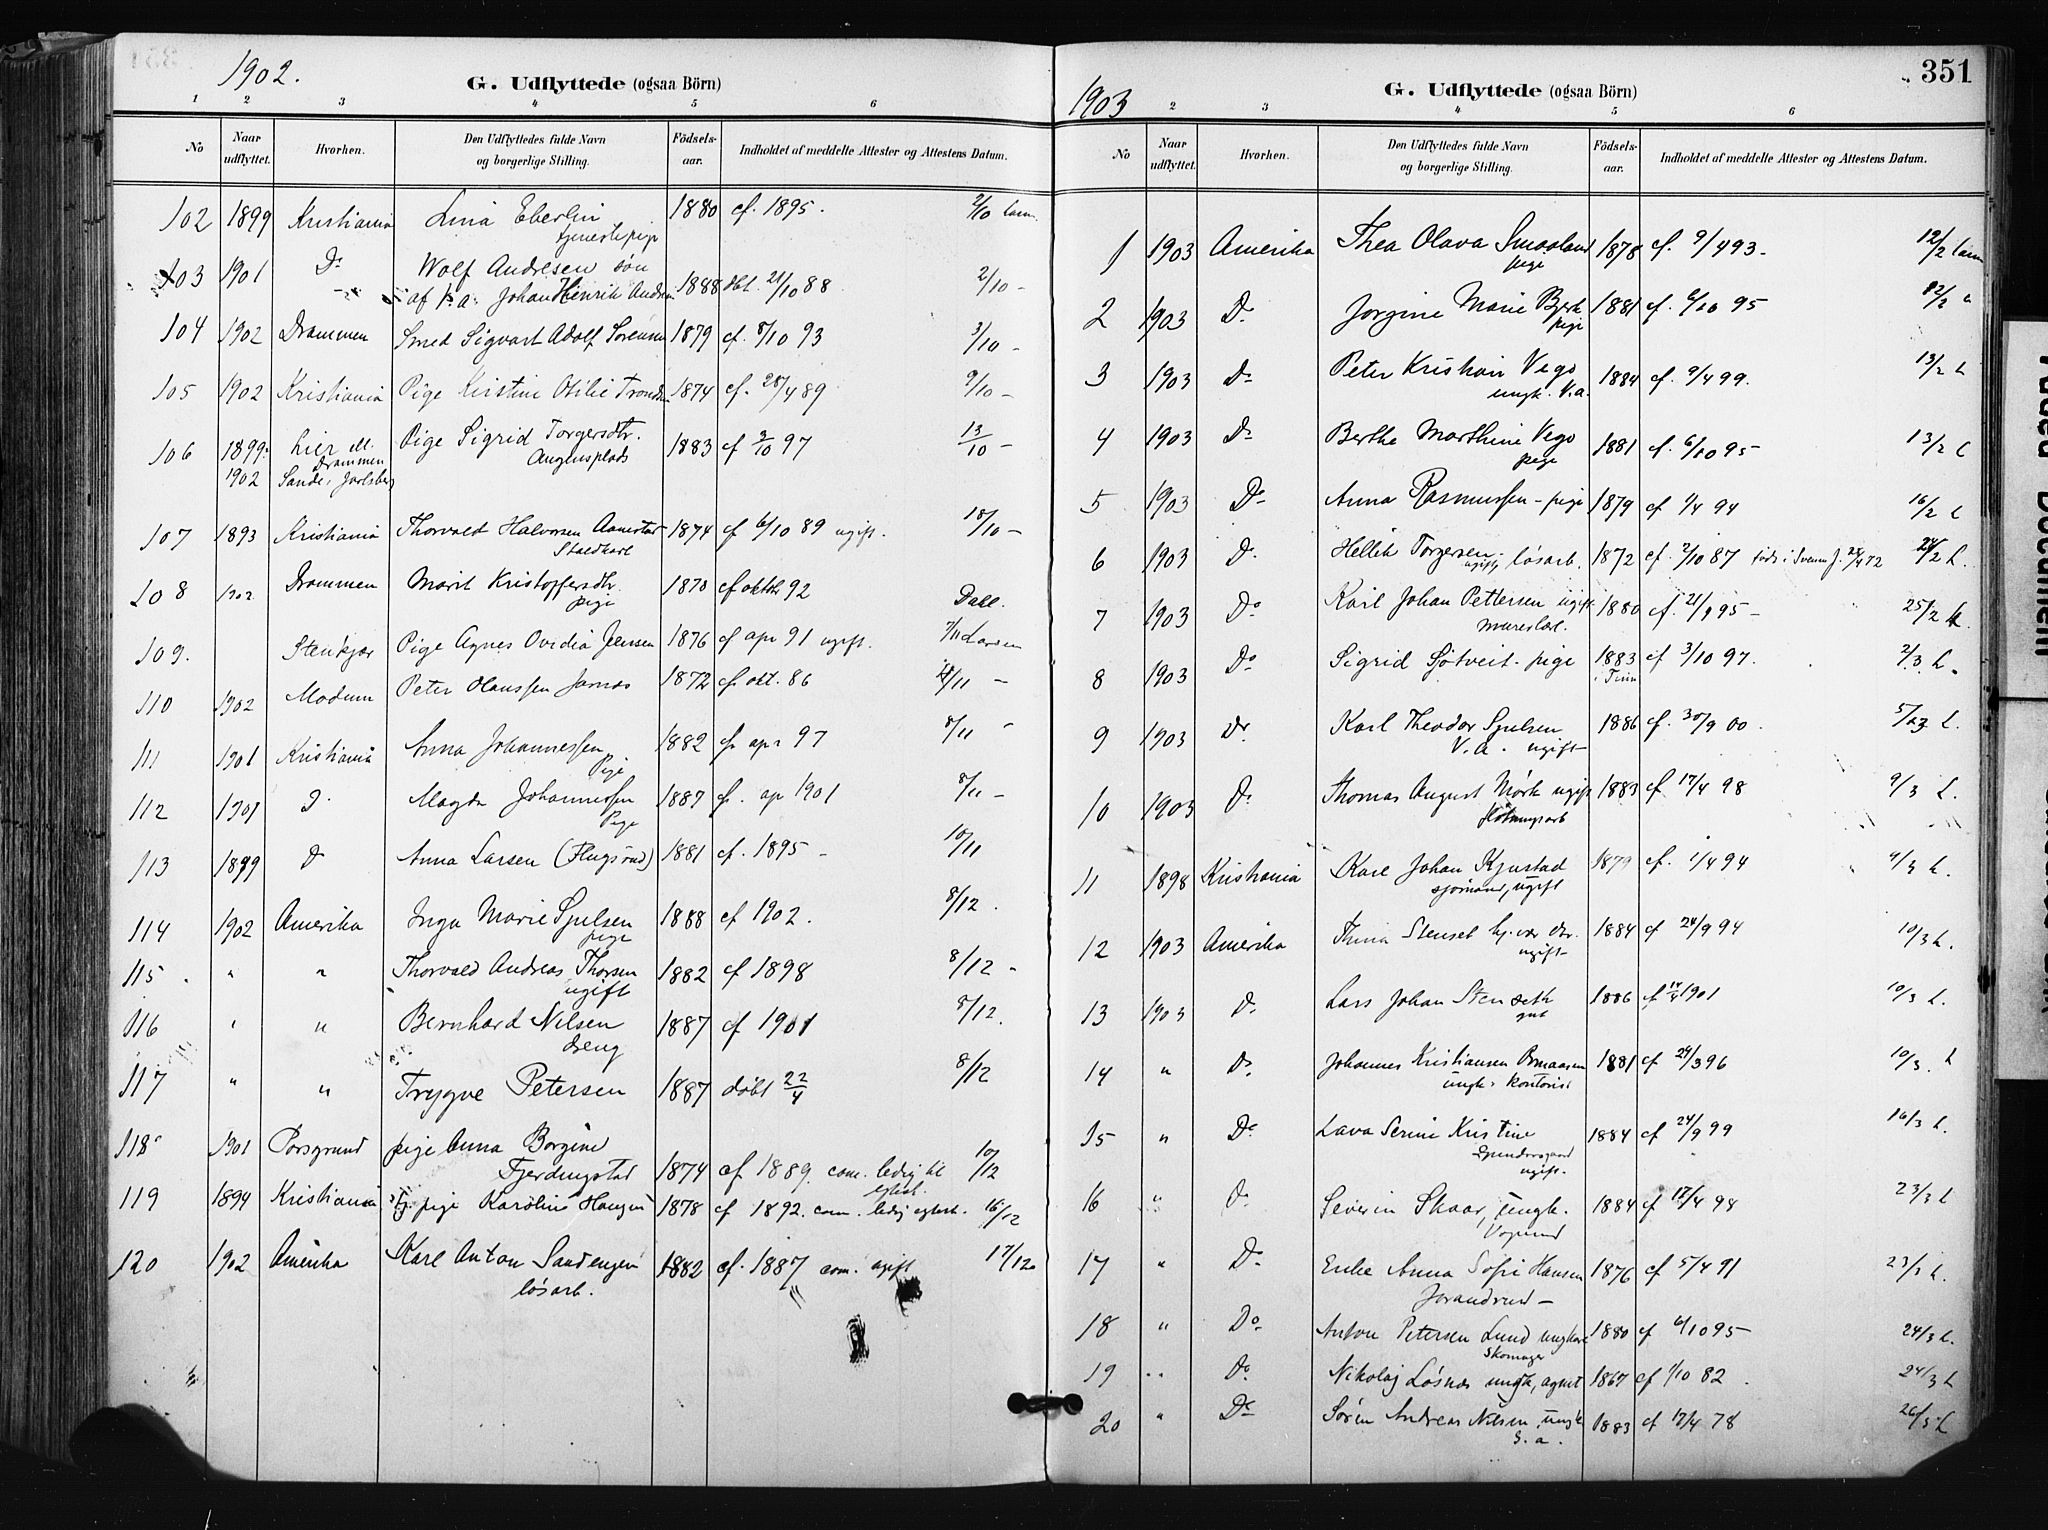 1902.
G. Udflyttede (ogsaa Börn)
1 2 3 4 5 6
No
Naar udflyttet.
Hvorhen.
Den Udflyttedes fulde Navn og borgerlige Stilling.
Födsels-aar.
Indholdet af meddelte Attester og Attestens Datum.
102 1899 Kristiania Lina Eberlin 1880 cf. 1895. 2/10
tjenestepige
103 1901 Do Wolf Andresen søn
af Johan Henrik 1888 21/10 88 2/10 -
104 1902 Drammen Smed Sigvart Adolf Sørensen 1879 cf. 8/10 93 3/10 -
105 1902 Kristiania Pige Kristine Otilie 1874 cf. 28/4 89 9/10 -
106 1899- Lier Pige Sigrid Torgersdtr. 1883 cf 3/10 97 13/10 -
Drammen
1902 Sande i Jarlsberg
107 1893 Kristiania Thorvald Halvorsen 1874 cf 6/10 89 ugift. 18/10 -
Staldkarl
108 1902 Drammen Marit Kristoffersdtr. 1870 cf oktbr 92 Dahl.
pige
109. Stenkjær Pige Agnes Ovidia Jensen 1876 cf apr 91 ugift. 7/11 Larsen
110 1902 Modum Peter Hanssen 1872 cf okt. 86 /11 -
111 1901 Kristiania Anna Johannessen 1882 cf apr 97 8/11 -
Pige
112 1901 D. Magda Johannessen 1887 cf. ap 1901 8/11 -
Pige
113 1899 D Anna Larsen 1881 cf. 1895 - 10/11
114 1902 Amerika Inga Marie 1888 cf 1902. 8/12.
pige
115 " " Thorvald Andreas Thorsen 1882 cf 1898 8/12 -
ugift
116 " " Bernhard Nilsen 1887 cf 1901 8/12.
dreng
117 " " Trygve Petersen 1887 døbt 22/4 8/12
118 1901 Porsgrund pige Anna Borgine
Fjerdingstad 1874 cf 1889. com. ledig til 10/12
119 1894 Kristiania tj. pige Karoline Haugen 1878 cf 1892. com. ledig 16/12
120 1902 Amerika Karl Anton Sandengen 1882 cf. 1887 com. ugift 17/12
løsarb.
351
1903
G. Udflyttede (ogsaa Börn)
2 3 4 5 6
No
Naar udflyttet.
Hvorhen.
Den Udflyttedes fulde Navn og borgerlige Stilling.
Födsels-aar.
Indholdet af meddelte Attester og Attestens Datum.
1 1903 Amerika Thea Olava Smaaland 1878 cf. 9/4 93 - 12/2
pige
2 1903 Do Jorgine Marie 1881 cf. 6/10 95 12/2
pige
3 1903 Do Peter Kristian Vego 1884 cf. 9/4 99. 13/2 L
ungk. V.a.
4 1903 Do Berthe Marthine Vego 1881 cf. 6/10 95 - 13/2 L
pige
5 1903 Do Anna Rasmussen - pige 1879 cf 1/4 94 16/2 L
6 1903 Do Hellik Torgersen - løsarb. 1872 cf. 2/10 87 født i 24/2 L.
ugift
7 1903 Do Karl Johan Pettersen ugift 1880 cf. 21/ 95 - 25/2
8 1903 Do Sigrid Sjøtveit - pige 1883 cf 3/10 97. 2/3 L.
i Tinn
9 1903 Do Karl Theodor 1886 cf. 30/9 00. 5/3 L.
V.a. ugift
10 1903 Do Thomas August Mørk ugift 1883 cf 17/4 98 9/3 L.
11 1898 Kristiania Karl Johan Kjustad 1879 cf. 1/4 94 9/3 L.
sjømand, ugift
12 1903 Amerika Stenset 1884 cf 24/9 94 10/3 L.
ugift
13 1903 Do Lars Johan Stenseth 1886 cf 1901 10/3 L.
gut
14 " Do Johannes Kristiansen 1881 cf 24/3 96 10/3. L
ungk. kontorist
15 " Do Lava Serine Kristine 1884 cf 24/9 99 16/3 L.
ugift.
16 " Do Severin Skaar, ungk. 1884 cf 17/4 98 23/3 L
17 " Do Enke Anna Sofie Hansen 1876 cf 5/4 91 23/3 L.
18 " Do Anton Petersen Lund ungkar 1880 cf 6/10 95 - 24/3 L.
Skomager
19 " Do Nikolaj Løsnæs ungk, agent 1867 cf 1/10 82. 24/3 L
20 " Do Søren Andreas Nilsen, ungk 1883 cf 17/4 78 26/3 L
S.a.